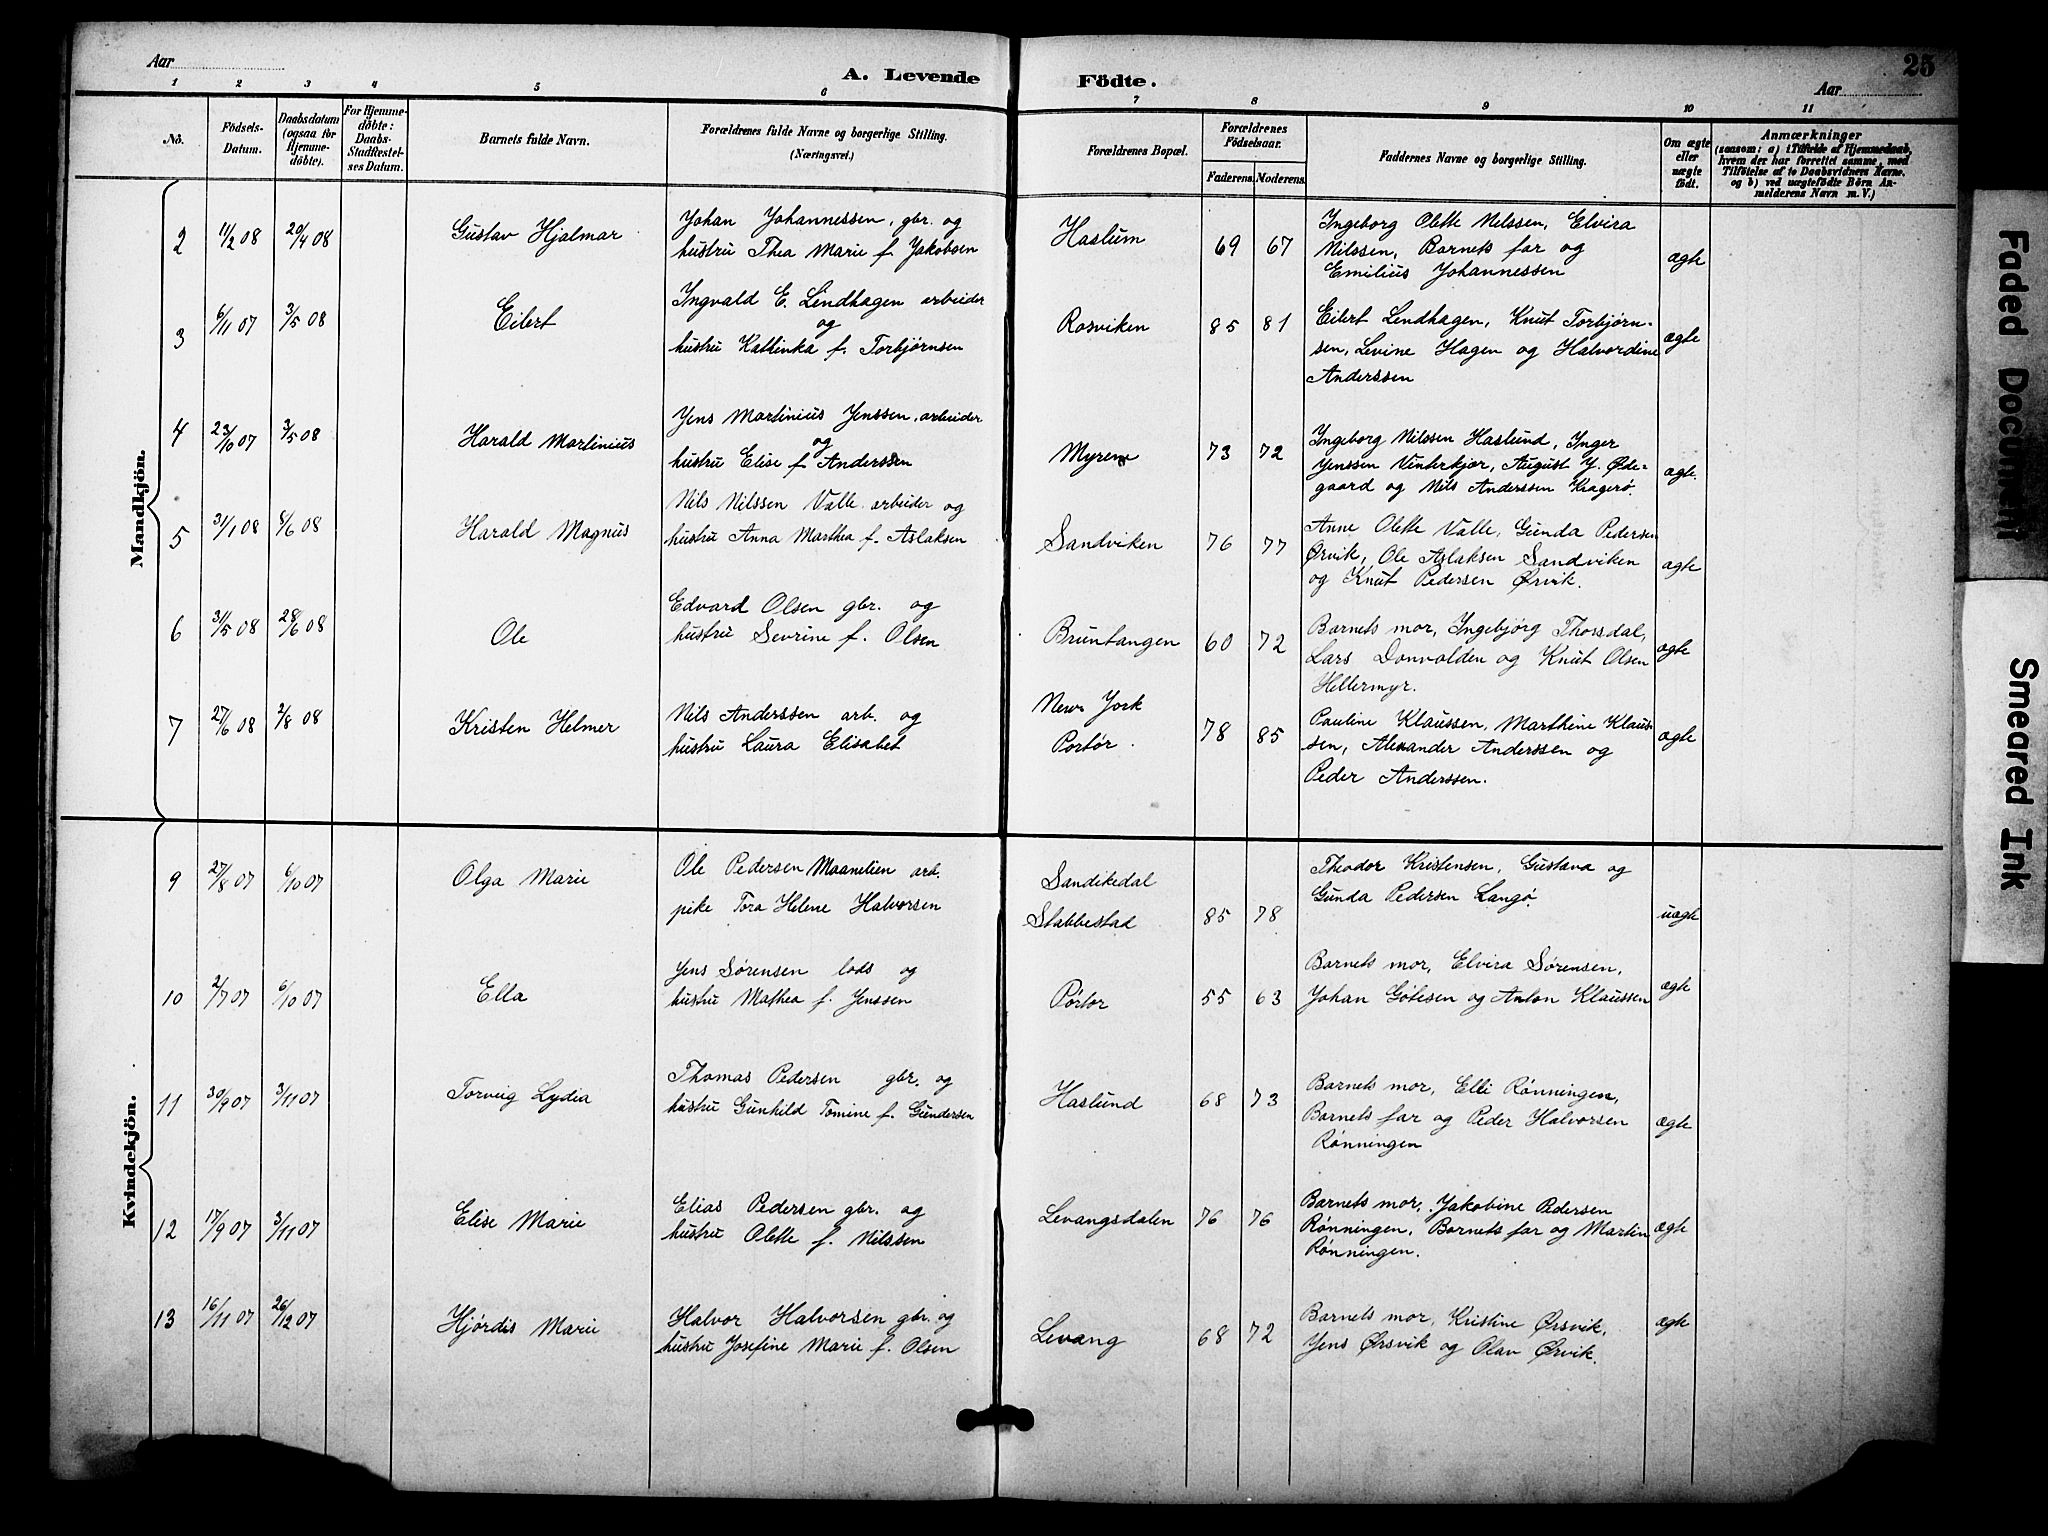 Aar
A. Levende
Födte.
Aar
25
1 2 3 4 5 6 7 8 9 10 11
No.
Födsels-
Datum.
Daabsdatum
(ogsaa for
Hjemme-
döbte).
For Hjemme-
döbte:
Daabs-
Stadfæstel-
ses Datum.
Barnets fulde Navn.
Forældrenes fulde Navne og borgerlige Stilling.
(Næringsvei.)
Forældrenes Bopæl.
Forældrenes
Födselsaar.
Faderens. Moderens.
Faddernes Navne og borgerlige Stilling.
Om ægte
eller
uægte
födt.
Anmærkninger
(saasom: a) i Tilfælde af Hjemmedaab,
hvem der har forrettet samme, med
Tilföielse af to Daabsvidners Navne.
og b) ved uægtefödte Börn An-
melderens Navn m. V.)
Mandkjön.
2 11/2 08 20/4 08 Gustav Hjalmar
Johan Johannessen, gbr. og
hustru Thea Marie f. Jakobsen
Haslum 69 67
Ingeborg Olette Nilssen, Elvira
Nilssen, Barnets far og
Emilius Johannessen
ægte
3 6/11 07 3/5 08 Eilert
Ingvald E. Lindhagen arbeider
og
hustru Kathinka f. Torbjørnsen
Rosviken 85 81
Eilert Lendhagen, Knut Torbjørn-
sen, Levine Hagen og Halvordine
Anderssen
ægte
4 23/10 07 3/5 08 Harald Martinius
Jens Martinius Jenssen, arbeider
og
hustru Elise f. Anderssen
Myrene 73 72
Ingeborg Nilssen Haslund, Inger
Jenssen Vinterkjær, August J. Øde-
gaard og Nils Anderssen Kragerø.
ægte.
5 31/1 08 8/6 08 Harald Magnus
Nils Nilssen Valle arbeider og
hustru Anna Marthea f. Aslaksen
Sandviken 76 77
Anne Olette Valle, Gunda Pedersen
Ørvik, Ole Aslaksen Sandviken
og Knut Pedersen Ørvik.
ægte
6 31/5 08 28/6 08 Ole
Edvard Olsen gbr. og
hustru Sevrine f. Olsen
Bruntangen 60 72
Barnets mor, Ingebjørg Thorsdal,
Lars Donvalden og Knut Olsen
Hellermyr.
ægte
7 27/6 08 2/8 08 Kristen Helmer
Nils Anderssen arb. og
hustru Laura Elisabet
New York
Portør. 78 85
Pauline Klaussen, Marthine Klaus-
sen, Alexander Anderssen og
Peder Anderssen.
ægte
Kvindekjön.
9 27/8 07 6/10 07 Olga Marie
Ole Pedersen Maanelien arb.
pike Tora Helene Halvorsen
Sandikedal
Stabbestad 85 78
Theodor Kristensen, Gustava og
Gunda Pedersen Langø.
uægte
10 2/7 07 6/10 07 Ella
Jens Sørensen lods og
hustru Mathea f. Jenssen
Portør 55 63
Barnets mor, Elvira Sørensen,
Johan Gøtesen og Anton Klaussen
ægte
11 30/9 07 3/11 07 Torveig Lydia
Thomas Pedersen gbr. og
hustru Gunhild Tomine f. Gundersen
Haslund 68 73
Barnets mor, Elli Rønningen,
Barnets far og Peder Halvorsen
Rønningen
ægte
12 17/9 07 3/11 07 Elise Marie
Elias Pedersen gbr. og
hustru Olette f. Nilssen
Levangsdalen 76 76
Barnets mor, Jakobine Pedersen
Rønningen, Barnets far og Martin
Rønningen.
ægte
13 16/11 07 26/12 07 Hjørdis Marie
Halvor Halvorsen gbr. og
hustru Josefine Marie f. Olsen
Levang 68 72
Barnets mor, Kristine Ørsvik,
Jens Ørsvik og Olav Ørvik.
ægte
Faded Document
Smeared Ink